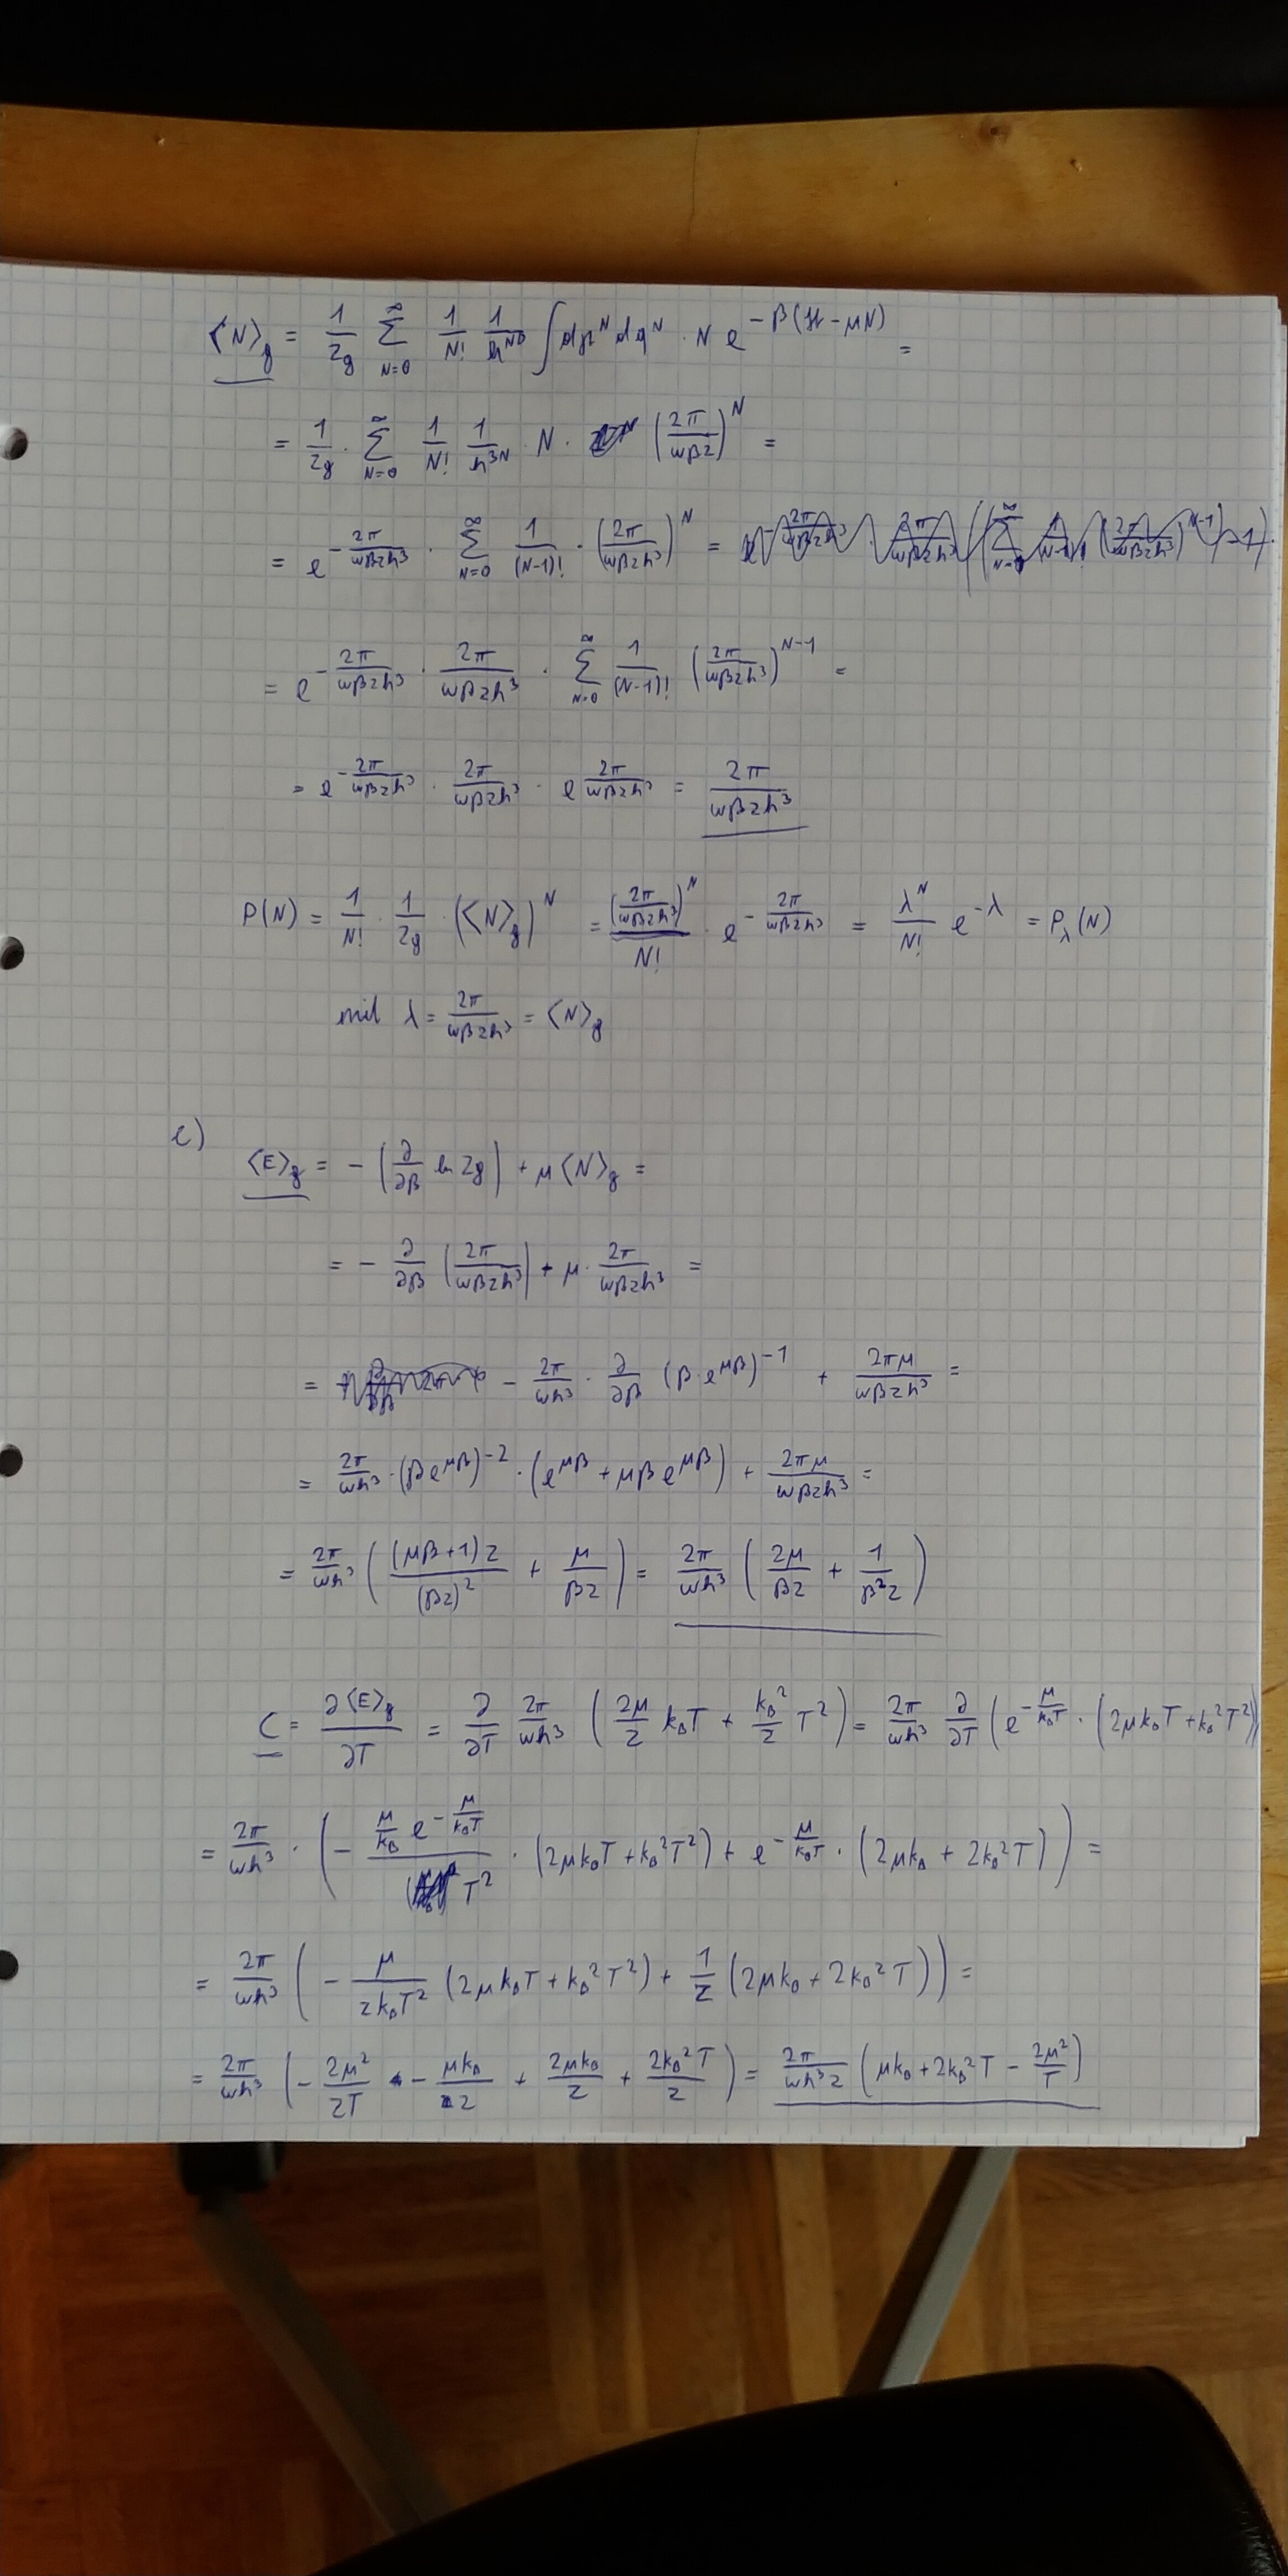 ⟨N⟩_g = 1/Z_g ∑_{N=0}^{∞} 1/N! 1/h^{ND} ∫dp^N dq^N · N e^{-β(H-μN)} =
= 1/Z_g · ∑_{N=0}^{∞} 1/N! 1/h^{3N} · N · (2π/(ωβz))^N =
= e^{-2π/(ωβzh³)} · ∑_{N=0}^{∞} 1/(N-1)! · (2π/(ωβzh³))^N =
= e^{-2π/(ωβzh³)} · 2π/(ωβzh³) · ∑_{N=0}^{∞} 1/(N-1)! (2π/(ωβzh³))^{N-1} =
= e^{-2π/(ωβzh³)} · 2π/(ωβzh³) · e^{2π/(ωβzh³)} = 2π/(ωβzh³)
P(N) = 1/N! · 1/Z_g · (⟨N⟩_g)^N = (2π/(ωβzh³))^N/N! · e^{-2π/(ωβzh³)} = λ^N/N! e^{-λ} = P_λ(N)
mit λ = 2π/(ωβzh³) = ⟨N⟩_g
c)
⟨E⟩_g = -(∂/∂β ln Z_g) + μ⟨N⟩_g =
= - ∂/∂β (2π/(ωβzh³)) + μ · 2π/(ωβzh³) =
= - 2π/(ωh³) · ∂/∂β (β·e^{μβ})^{-1} + 2πμ/(ωβzh³) =
= 2π/(ωh³) · (βe^{μβ})^{-2} · (e^{μβ} + μβe^{μβ}) + 2πμ/(ωβzh³) =
= 2π/(ωh³) ((μβ+1)z/(βz)² + μ/(βz)) = 2π/(ωh³) (2μ/(βz) + 1/(β²z))
C = ∂⟨E⟩_g/∂T = ∂/∂T 2π/(ωh³) (2μ/z k_BT + k_B²/z T²) = 2π/(ωh³) ∂/∂T (e^{-μ/(k_BT)} · (2μk_BT + k_B²T²))
= 2π/(ωh³) · (- (μ/k_B e^{-μ/(k_BT)})/T² · (2μk_BT + k_B²T²) + e^{-μ/(k_BT)} · (2μk_B + 2k_B²T)) =
= 2π/(ωh³) (- μ/(zk_BT²) (2μk_BT + k_B²T²) + 1/z (2μk_B + 2k_B²T)) =
= 2π/(ωh³) (- 2μ²/(zT) - μk_B/z + 2μk_B/z + 2k_B²T/z) = 2π/(ωh³z) (μk_B + 2k_B²T - 2μ²/T)